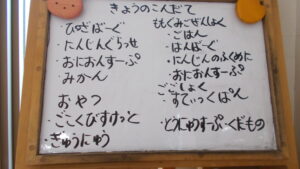 きょうのこんだて
・はんばーぐ
・にんじんぐらっせ
・おにおんすーぷ
・みかん
おやつ
・ごこくびすけっと
・ぎゅうにゅう
ごはん
・はんばーぐ
・にんじんのふくめに
・おにおんすーぷ
ごごしょく
・すてぃっくぱん
・とうにゅうすーぷ・くだもの